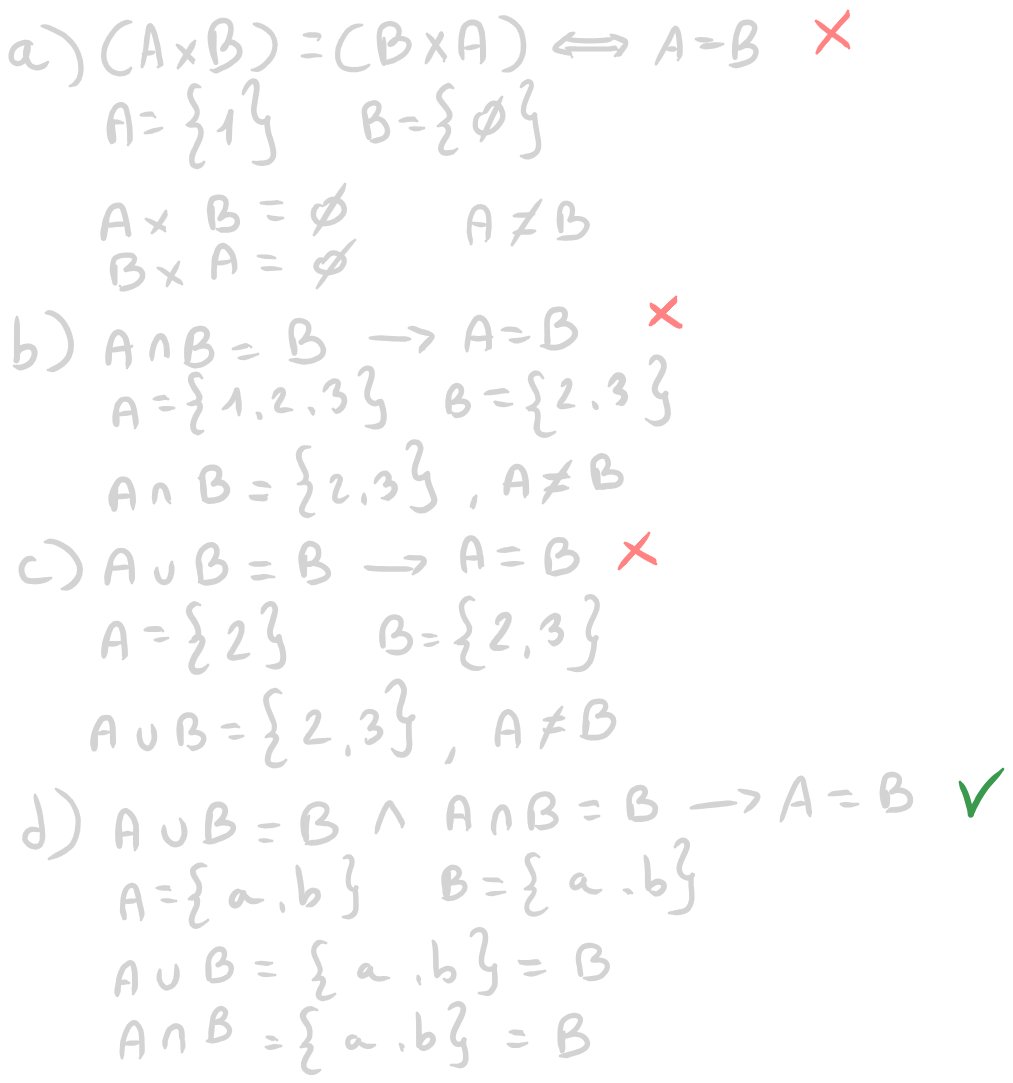 a) (A×B) = (B×A) ⟺ A=B ✗
A={1} B={∅}
A× B=∅ A≠B
B× A=∅
b) A∩B=B → A=B ✗
A={1,2,3} B={2,3}
A∩B={2,3}, A≠B
c) A∪B=B → A=B ✗
A={2} B={2,3}
A∪B={2,3}, A≠B
d) A∪B=B ∧ A∩B=B → A=B ✓
A={a,b} B={a,b}
A∪B={a,b}=B
A∩B={a,b}=B